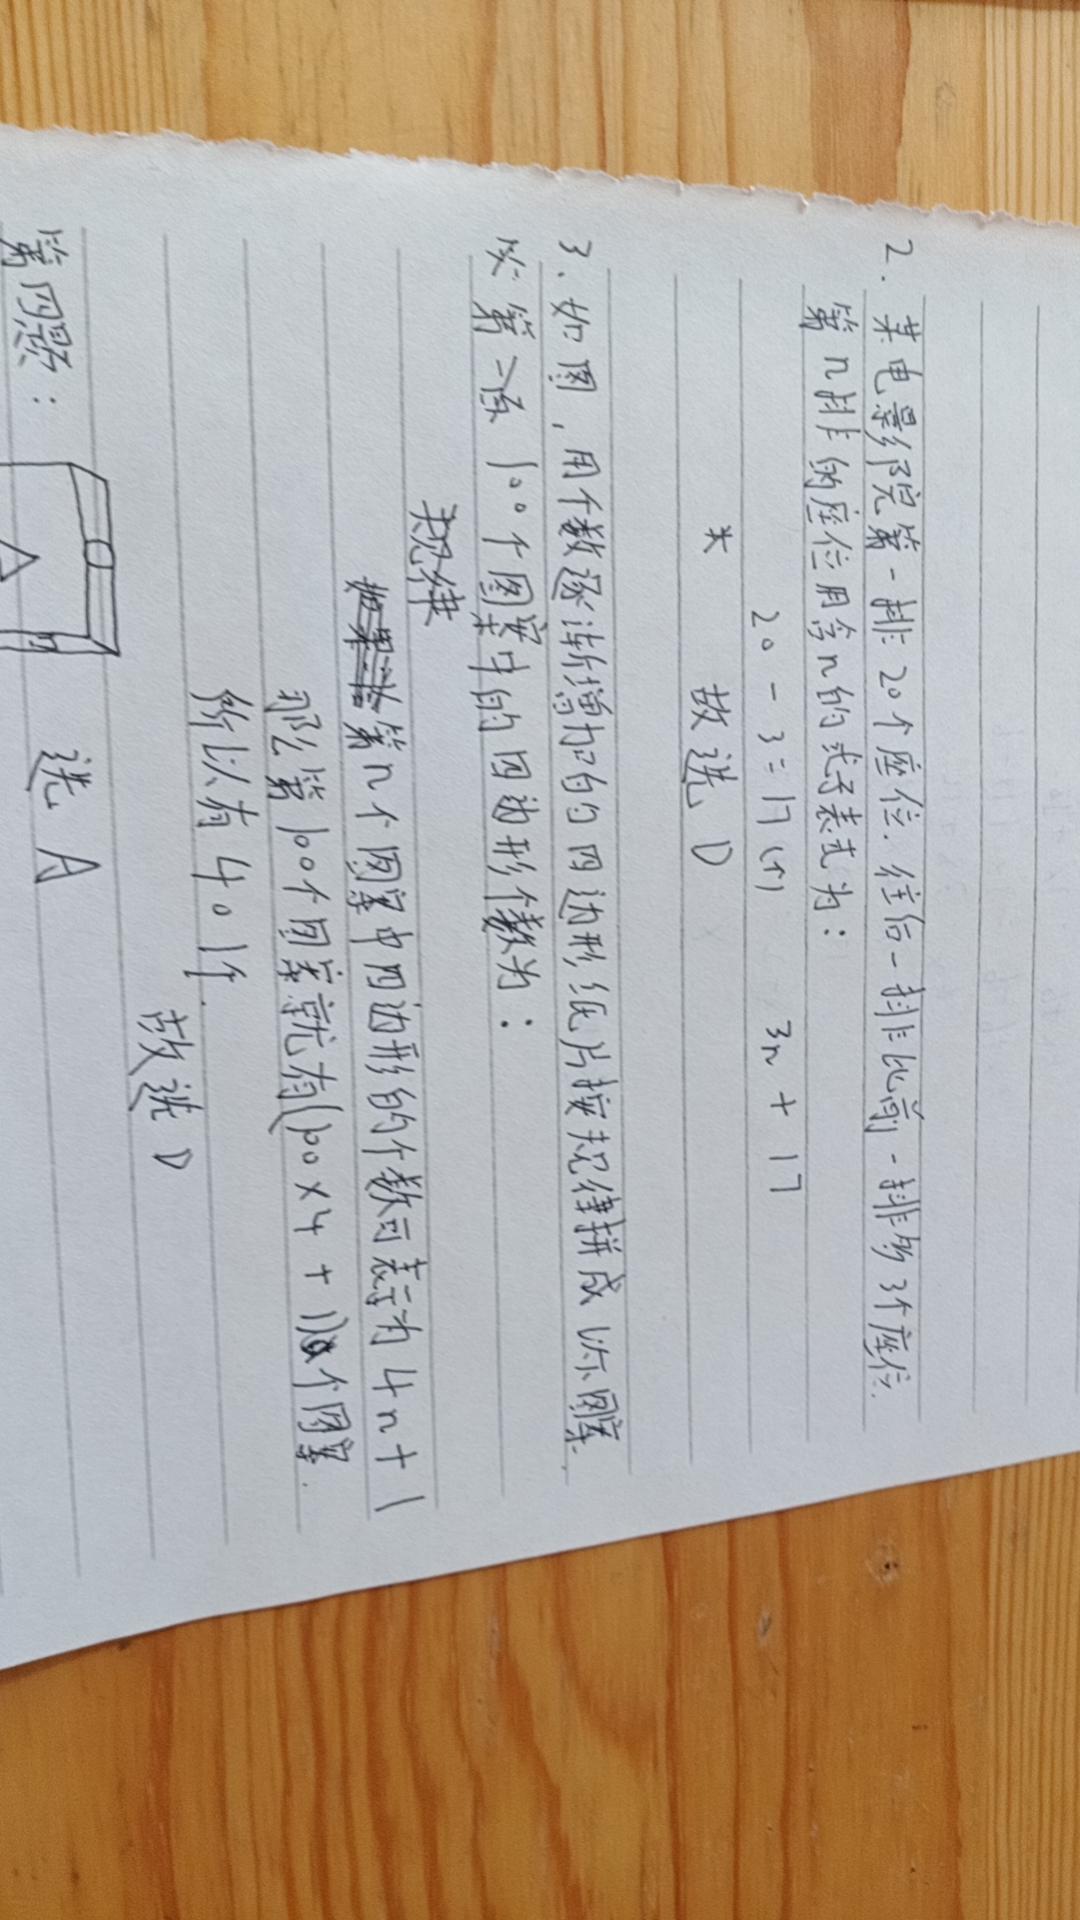 2. 某电影院第一排20个座位.往后一排比前一排多3个座位.
第n排的座位用含n的式子表示为：
20-3=17(个) 3n+17
故选D
3.如图,用个数逐渐增加的四边形纸片按规律拼成以下图案.
第一百 100个图案中的四边形个数为：
规律
第n个图案中四边形的个数可表示为4n+1
那么第100个图案就有(100×4+1)个图案.
所以有401个.
故选D
第四题： 选A